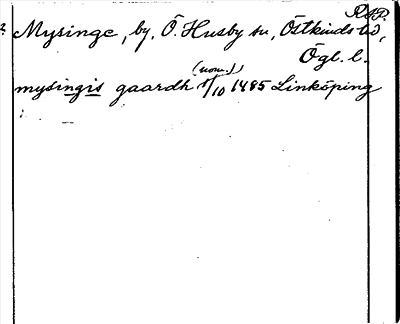 RAP.
Mysinge, by, Ö. Husby sn, Östkinds hd,
Ögl. l.
(nom.)
mysingis gaardh 1/10 1485 Linköping